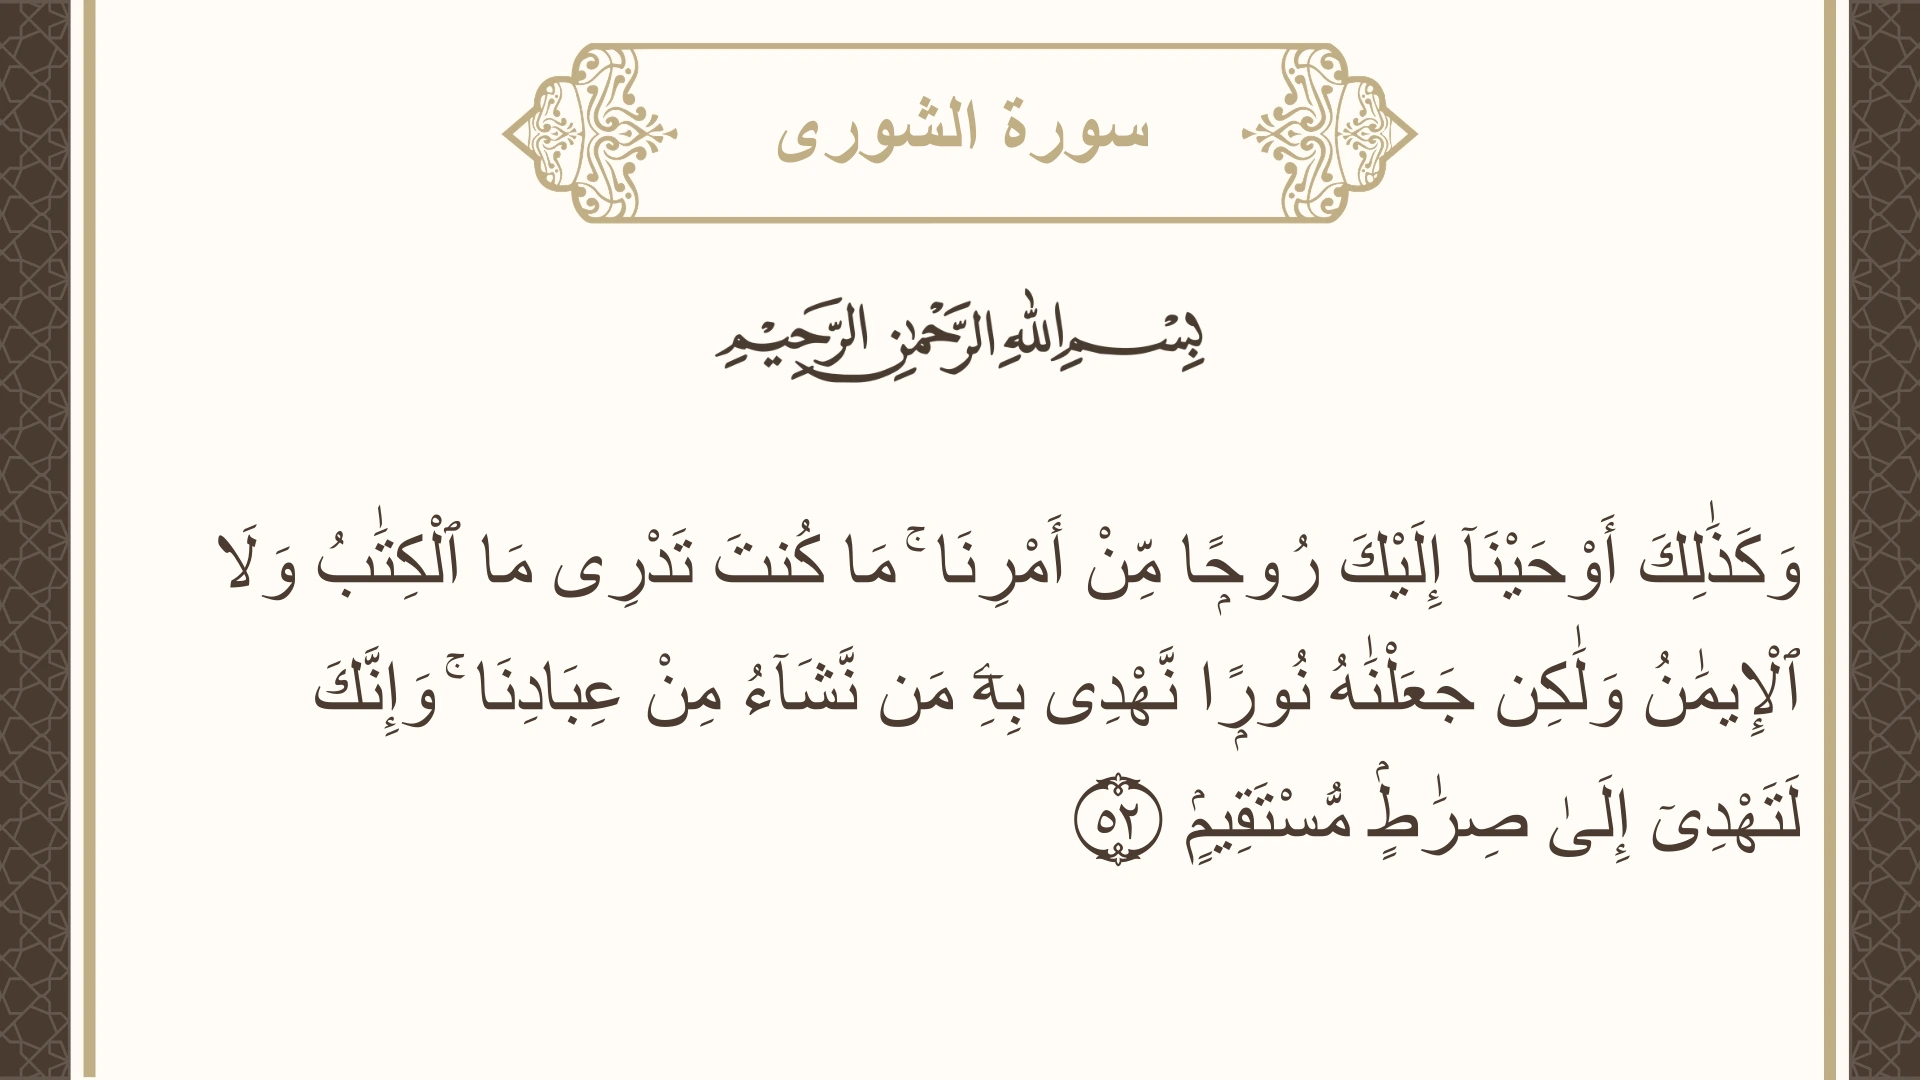 سورة الشورى
بِسْمِ اللهِ الرَّحْمٰنِ الرَّحِيْمِ
وَكَذَٰلِكَ أَوْحَيْنَآ إِلَيْكَ رُوحًۭا مِّنْ أَمْرِنَا ۚ مَا كُنتَ تَدْرِى مَا ٱلْكِتَٰبُ وَلَا
ٱلْإِيمَٰنُ وَلَٰكِن جَعَلْنَٰهُ نُورًۭا نَّهْدِى بِهِۦ مَن نَّشَآءُ مِنْ عِبَادِنَا ۚ وَإِنَّكَ
لَتَهْدِىٓ إِلَىٰ صِرَٰطٍۢ مُّسْتَقِيمٍۢ ٥٢